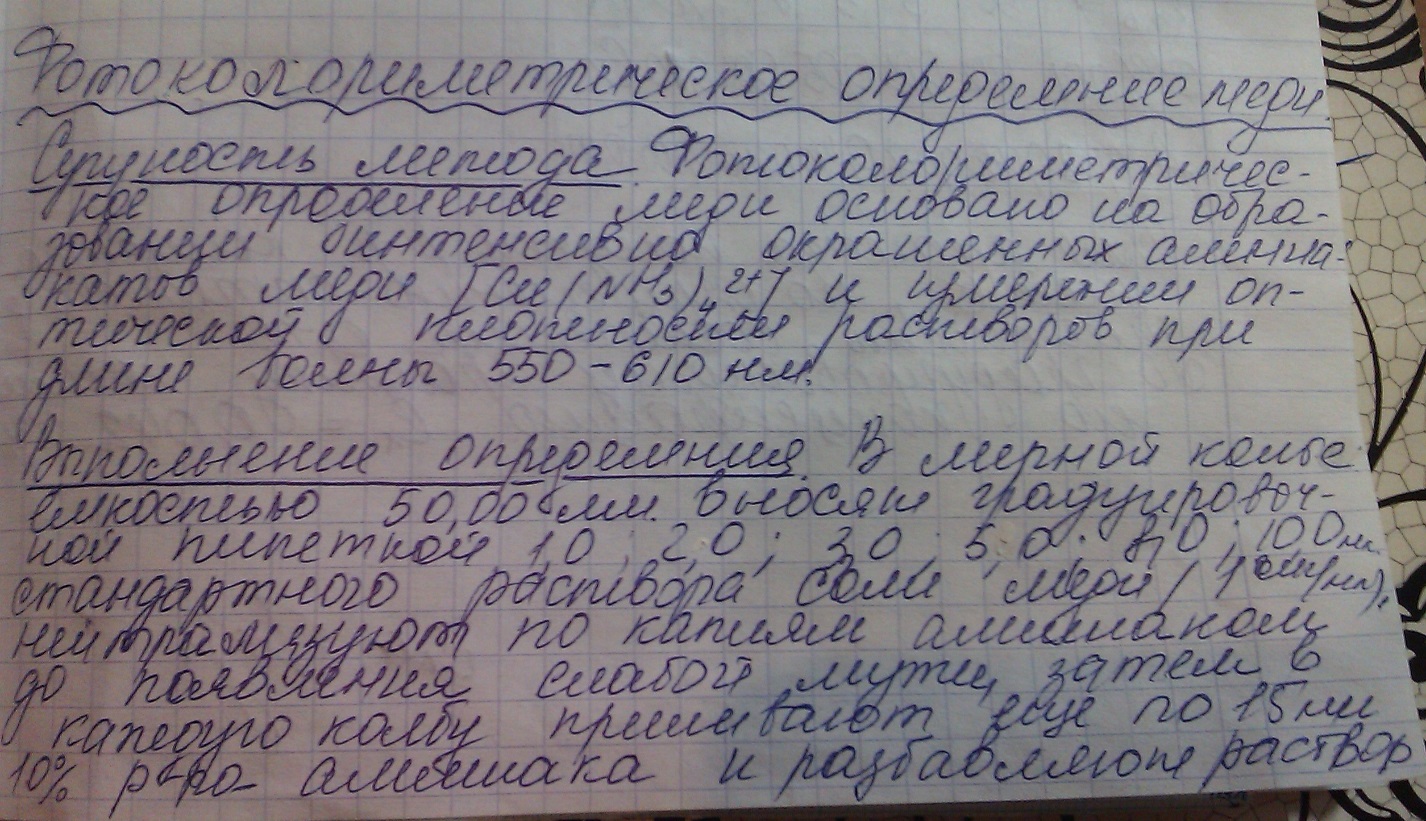 Фотоколориметрическое определение меди
Сущность метода. Фотоколориметричес-
кое определение меди основано на обра-
зовании интенсивно окрашенных аммиа-
катов меди [Cu(NH3)4 2+] и измерении оп-
тической плотности растворов при
длине волны 550-610 нм.
Выполнение определения. В мерной колбе
емкостью 50,00 мл. вносят градуировоч-
ной пипеткой 1,0; 2,0; 3,0; 5,0; 8,0; 10,0 мл.
стандартного раствора соли меди (1
нейтрализуют по каплям аммиаком
до появления слабой мути, затем в
каждую колбу приливают еще по 15 мл
10% р-ра аммиака и разбавляют раствор